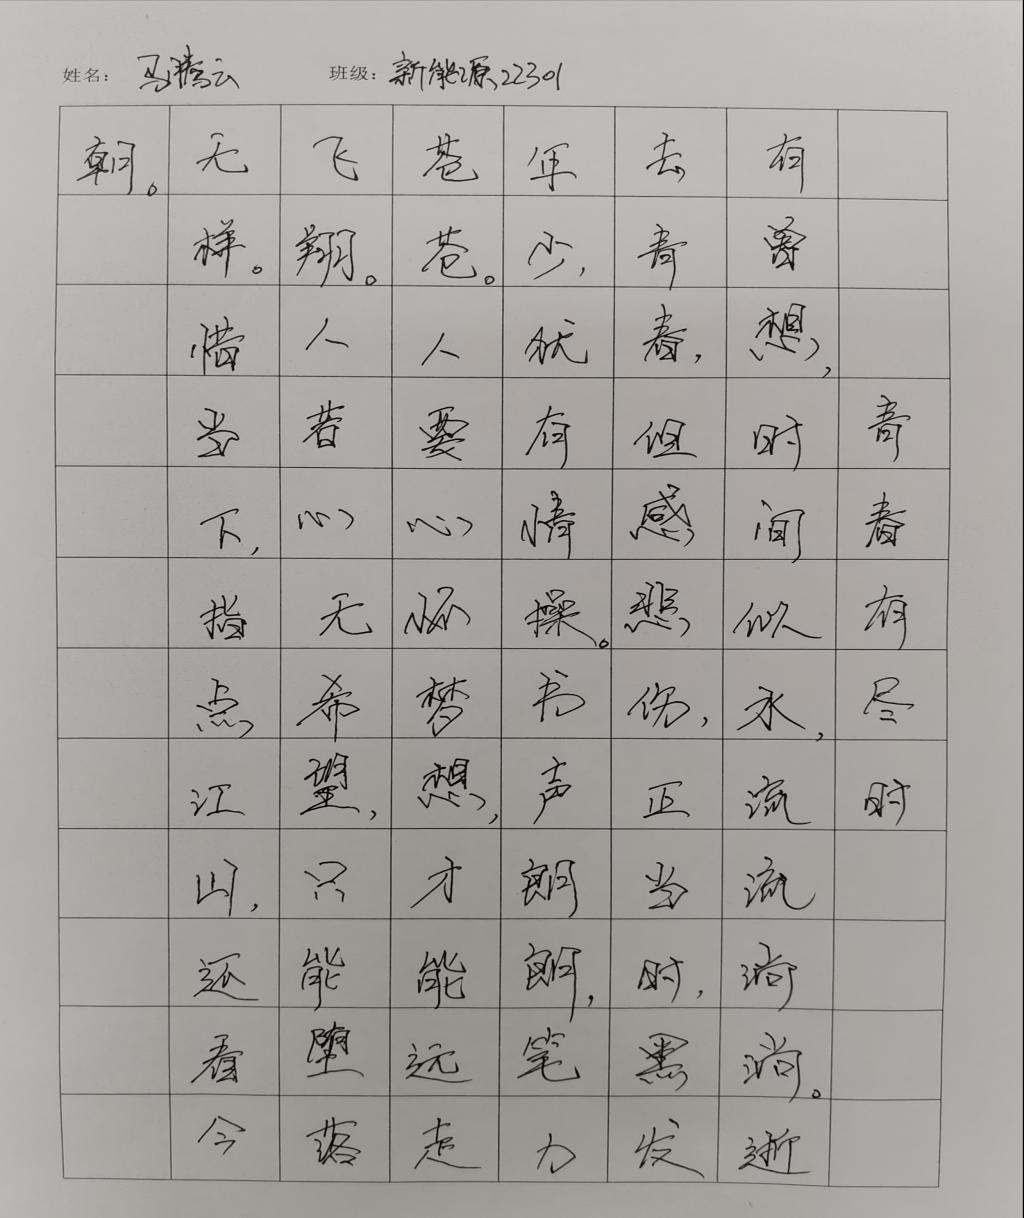 姓名：马腾云 班级：新能源22301
青春有尽时
有曾想，时间似水，流流淌淌。逝
去青春，但感悲伤，正当时，黑发
年少，犹有情操。书声朗朗，笔力
苍苍。人要心怀梦想，才能远走
飞翔。人若心无希望，只能堕落
无样。惜当下，指点江山，还看今
朝。